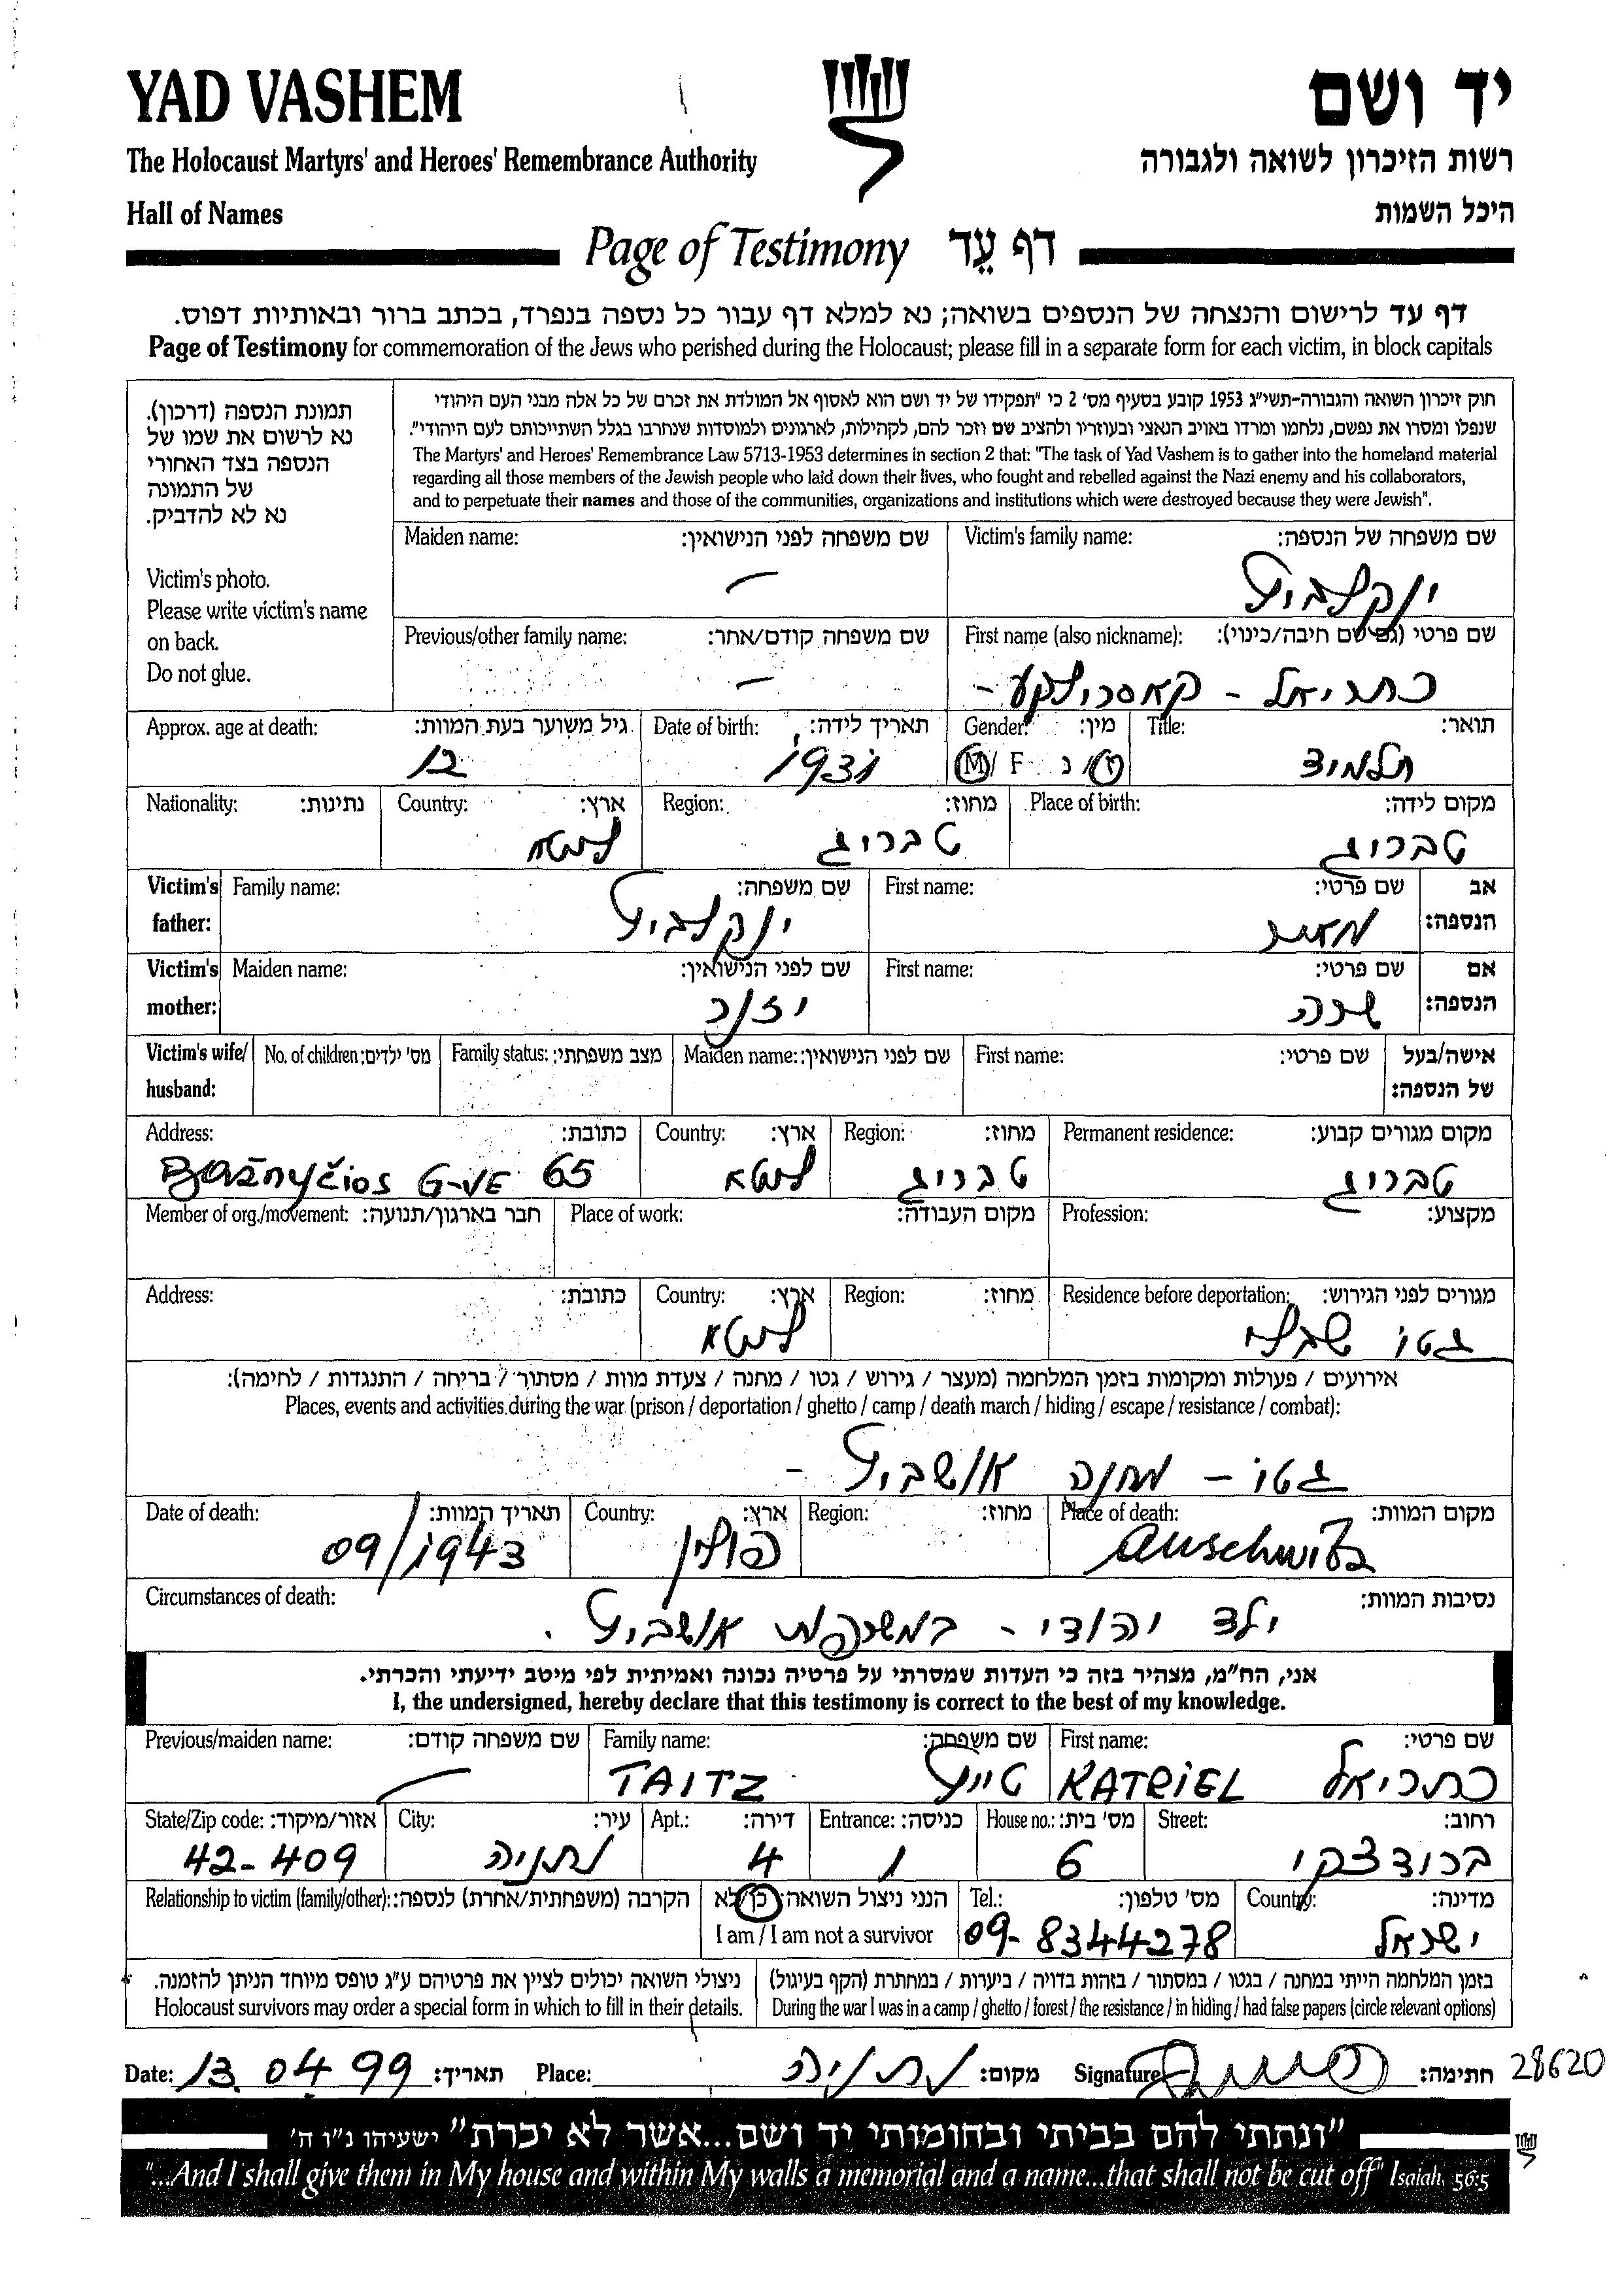 YAD VASHEM
יד ושם
The Holocaust Martyrs' and Heroes' Remembrance Authority
רשות הזיכרון לשואה ולגבורה
Hall of Names
היכל השמות
Page of Testimony דף עֵד
דף עד לרישום והנצחה של הנספים בשואה; נא למלא דף עבור כל נספה בנפרד, בכתב ברור ובאותיות דפוס.
Page of Testimony for commemoration of the Jews who perished during the Holocaust; please fill in a separate form for each victim, in block capitals
תמונת הנספה (דרכון).
נא לרשום את שמו של
הנספה בצד האחורי
של התמונה
נא לא להדביק.
Victim's photo.
Please write victim's name
on back.
Do not glue.
חוק זיכרון השואה והגבורה-תשי"ג 1953 קובע בסעיף מס' 2 כי "תפקידו של יד ושם הוא לאסוף אל המולדת את זכרם של כל אלה מבני העם היהודי
שנפלו ומסרו את נפשם, נלחמו ומרדו באויב הנאצי ובעוזריו ולהציב שם וזכר להם, לקהילות, לארגונים ולמוסדות שנחרבו בגלל השתייכותם לעם היהודי".
The Martyrs' and Heroes' Remembrance Law 5713-1953 determines in section 2 that: "The task of Yad Vashem is to gather into the homeland material
regarding all those members of the Jewish people who laid down their lives, who fought and rebelled against the Nazi enemy and his collaborators,
and to perpetuate their names and those of the communities, organizations and institutions which were destroyed because they were Jewish".
Maiden name: שם משפחה לפני הנישואין: Victim's family name: שם משפחה של הנספה:
— ינקלביץ
Previous/other family name: שם משפחה קודם/אחר: First name (also nickname): שם פרטי (גם שם חיבה/כינוי):
— כתריאל - קאסרילקע -
Approx. age at death: גיל משוער בעת המוות: Date of birth: תאריך לידה: Gender: מין: Title: תואר:
12 1931 M/ F נ/ז תלמיד
Nationality: נתינות: Country: ארץ: Region: מחוז: Place of birth: מקום לידה:
ליטא טבריג טבריג
Victim's father: Family name: שם משפחה: First name: שם פרטי: אב הנספה:
ינקלביץ מאיר
Victim's mother: Maiden name: שם לפני הנישואין: First name: שם פרטי: אם הנספה:
שרה
Victim's wife/ husband: No. of children: מס' ילדים: Family status: מצב משפחתי: Maiden name: שם לפני הנישואין: First name: שם פרטי: אישה/בעל של הנספה:
Address: כתובת: Country: ארץ: Region: מחוז: Permanent residence: מקום מגורים קבוע:
Bažnyčios G-VE 65 ליטא טבריג טבריג
Member of org./movement: חבר בארגון/תנועה: Place of work: מקום העבודה: Profession: מקצוע:
Address: כתובת: Country: ארץ: Region: מחוז: Residence before deportation: מגורים לפני הגירוש:
ליטא גטו שבלי
אירועים / פעולות ומקומות בזמן המלחמה (מעצר / גירוש / גטו / מחנה / צעדת מוות / מסתור / בריחה / התנגדות / לחימה):
Places, events and activities during the war (prison / deportation / ghetto / camp / death march / hiding / escape / resistance / combat):
גטו - מחנה אושביץ -
Date of death: תאריך המוות: Country: ארץ: Region: מחוז: Place of death: מקום המוות:
09/1943 פולין Auschwitz
Circumstances of death: נסיבות המוות:
ילד יהודי - במשרפות אושביץ.
אני, הח"מ, מצהיר בזה כי העדות שמסרתי על פרטיה נכונה ואמיתית לפי מיטב ידיעתי והכרתי.
I, the undersigned, hereby declare that this testimony is correct to the best of my knowledge.
Previous/maiden name: שם משפחה קודם: Family name: שם משפחה: First name: שם פרטי:
— TAITZ טייץ KATRiEL כתריאל
State/Zip code: אזור/מיקוד: City: עיר: Apt.: דירה: Entrance: כניסה: House no.: מס' בית: Street: רחוב:
42-409 נתניה 4 1 6 ברודצקי
Relationship to victim (family/other): הקרבה (משפחתית/אחרת) לנספה: הנני ניצול השואה: כן/לא Tel.: מס' טלפון: Country: מדינה:
I am / I am not a survivor 09-8344278 ישראל
ניצולי השואה יכולים לציין את פרטיהם ע"ג טופס מיוחד הניתן להזמנה. בזמן המלחמה הייתי במחנה / בגטו / במסתור / בזהות בדויה / ביערות / במחתרת (הקף בעיגול)
Holocaust survivors may order a special form in which to fill in their details. During the war I was in a camp / ghetto / forest / the resistance / in hiding / had false papers (circle relevant options)
Date: 13.04.99 תאריך: Place: נתניה מקום: Signature חתימה: 28620
"ונתתי להם בביתי ובחומותי יד ושם...אשר לא יכרת" ישעיהו נ"ו ה'
"...And I shall give them in My house and within My walls a memorial and a name...that shall not be cut off" Isaiah, 56:5